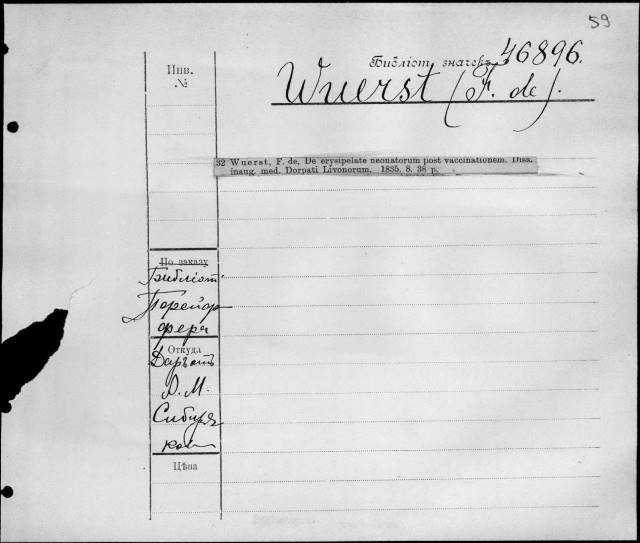 59
Библіот. значекъ 46896.
Инв.
№
Wuerst (F. de).
32 Wuerst, F. de, De erysipelate neonatorum post vaccinationem. Diss.
inaug. med. Dorpati Livonorum. 1835. 8. 38 p.
По заказу
Библіот
Порейф
фера
Откуда
Даръ отъ
А. М.
Сибиря
кова
Цѣна